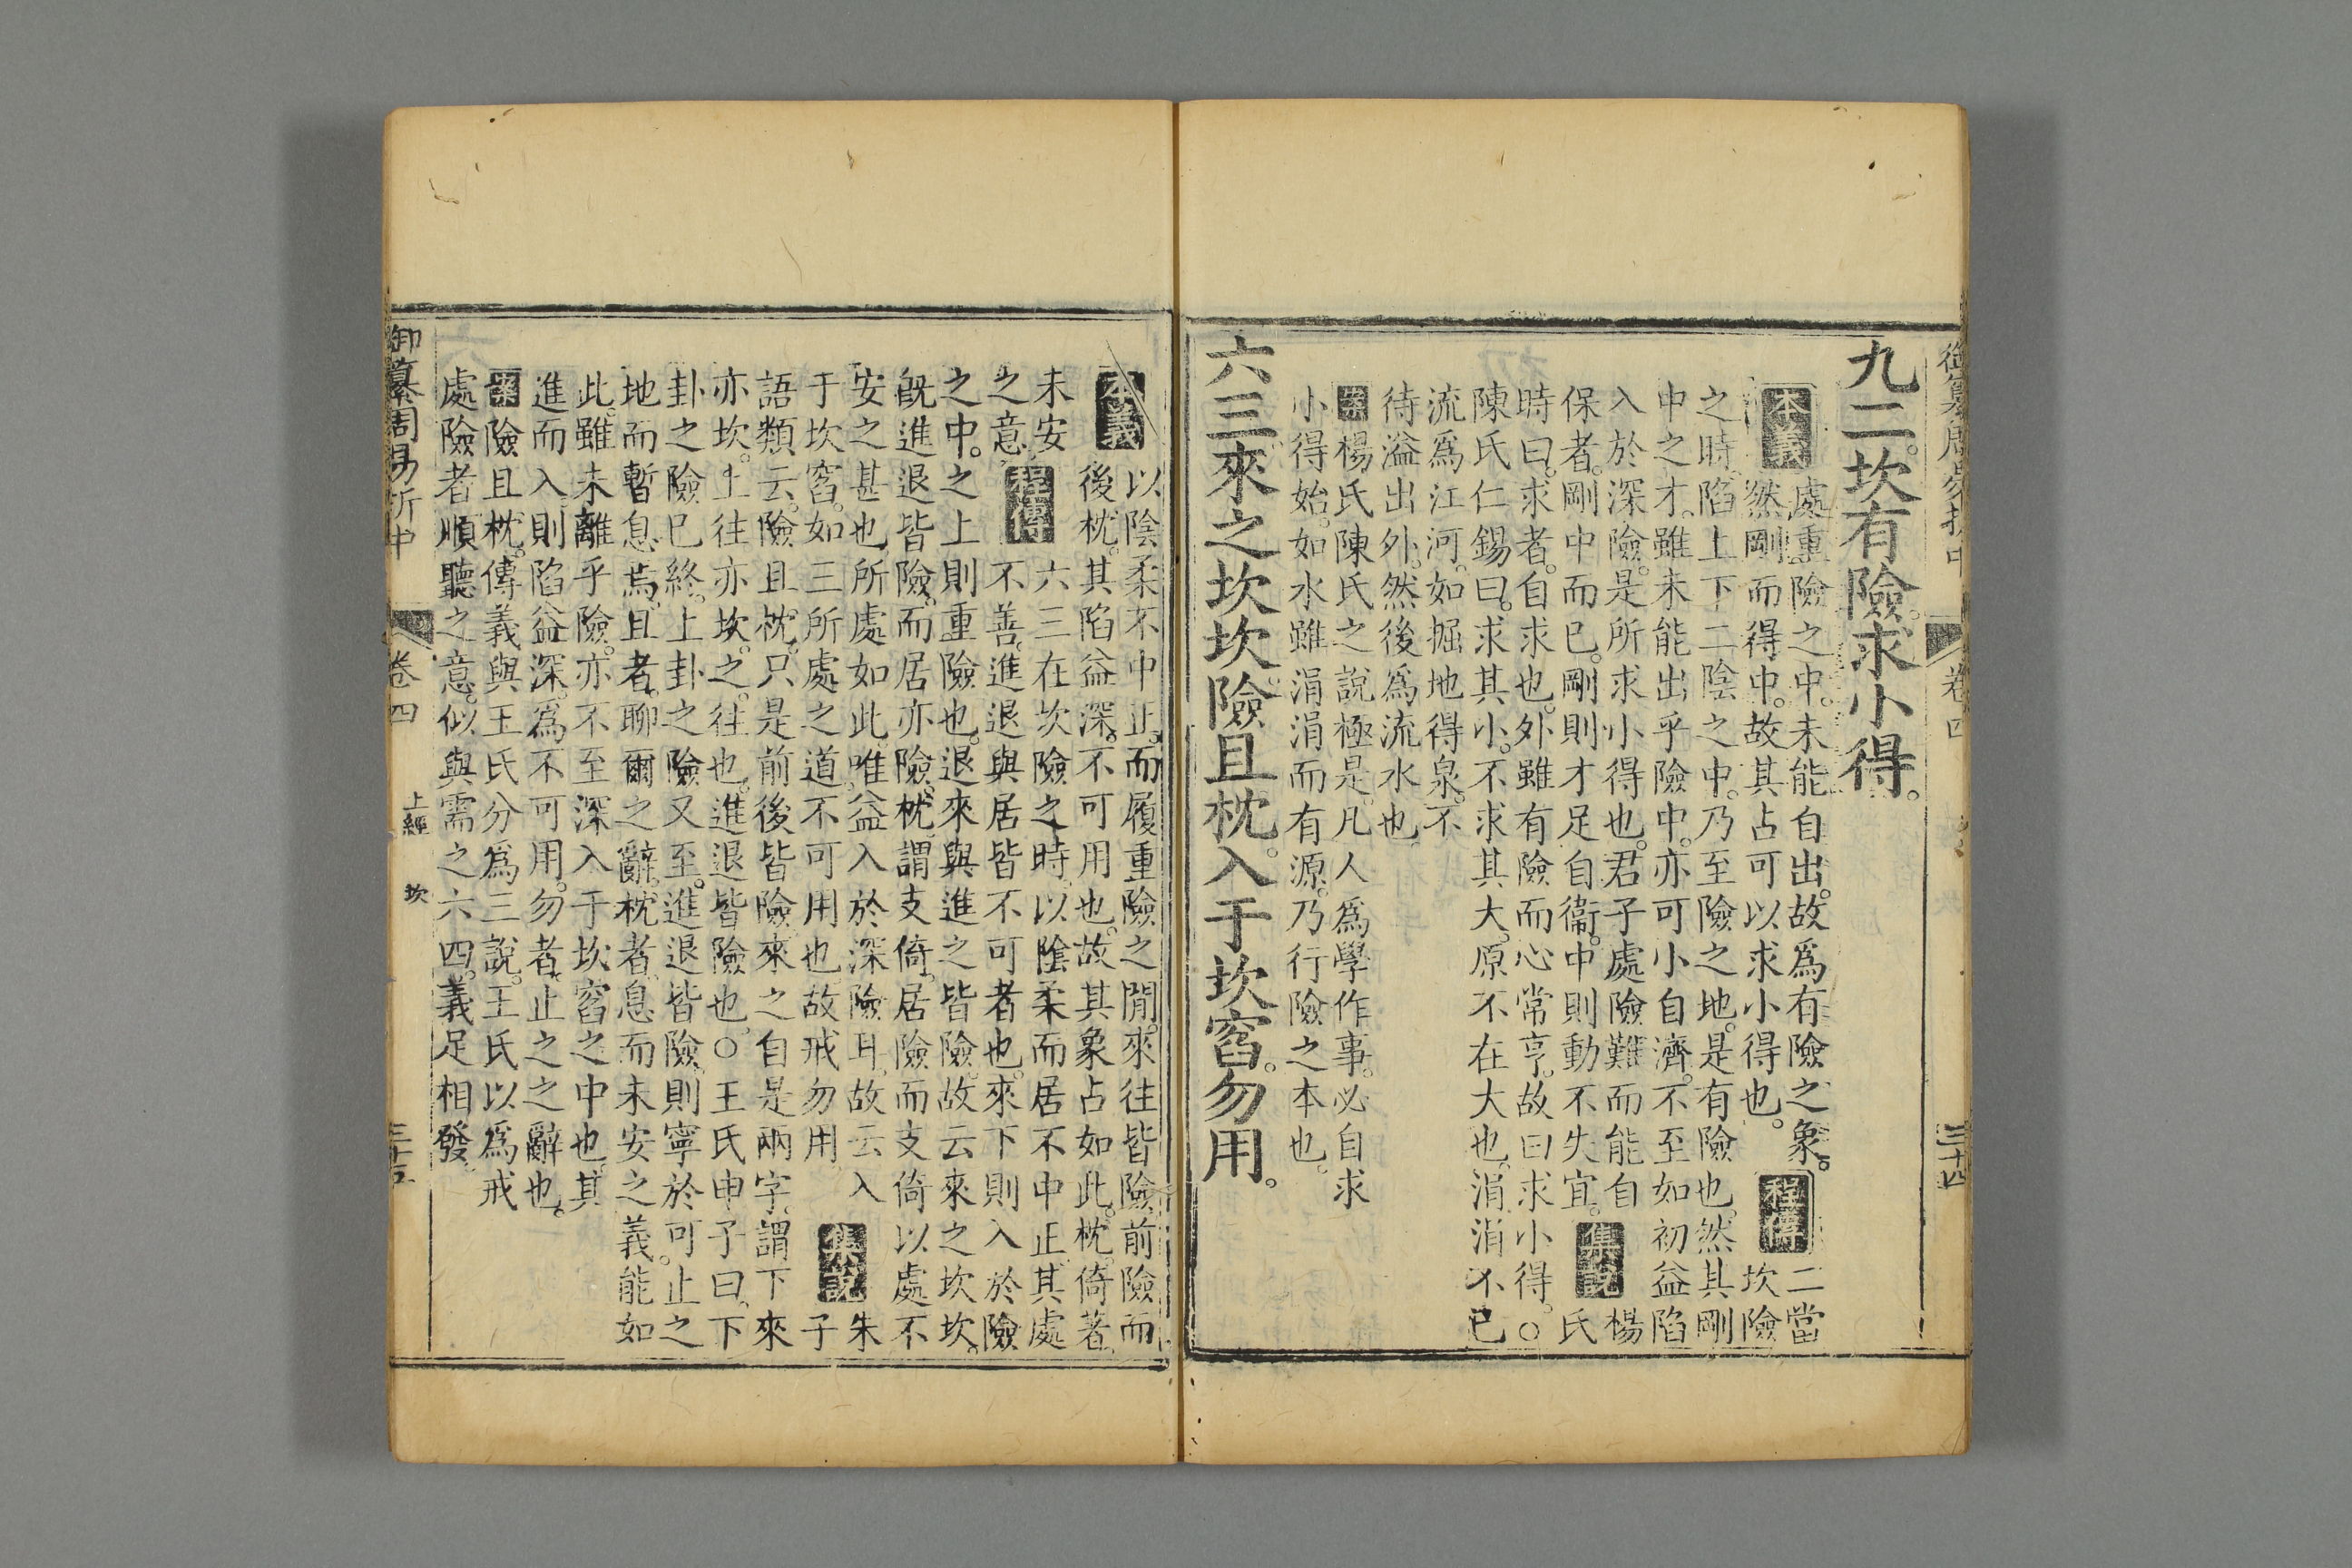 御纂周易折中 卷四 三十四
九二。坎有險。求小得。
本義 處重險之中。未能自出。故爲有險之象。程傳 二當
然剛而得中。故其占可以求小得也。坎險
之時。陷上下二陰之中。乃至險之地。是有險也。然其剛
中之才。雖未能出乎險中。亦可小自濟。不至如初益陷
入於深險。是所求小得也。君子處險難而能自集說 楊
保者。剛中而已。剛則才足自衞。中則動不失宜。氏
時曰。求者。自求也。外雖有險而心常亨。故曰求小得。○
陳氏仁錫曰。求其小。不求其大。原不在大也。涓涓不已
流爲江河。如掘地得泉。不
待溢出外。然後爲流水也。
案楊氏陳氏之說極是。凡人爲學作事。必自求
小得始。如水雖涓涓而有源。乃行險之本也。
六三。來之坎坎。險且枕。入于坎窞。勿用。
本義 以陰柔不中正。而履重險之閒。來往皆險。前險而
後枕。其陷益深。不可用也。故其象占如此。枕。倚著
未安程傳 六三在坎險之時。以陰柔而居不中正。其處
之意。不善。進退與居皆不可者也。來下則入於險
之中。之上則重險也。退來與進之皆險。故云來之坎坎。
旣進退皆險。而居亦險。枕。謂支倚。居險而支倚以處。不
安之甚也。所處如此。唯益入於深險耳。故云入集說 朱
于坎窞。如三所處之道。不可用也。故戒勿用。子
語類云。險且枕。只是前後皆險。來之自是兩字。謂下來
亦坎。上往亦坎。之。往也。進退皆險也。○王氏申子曰。下
卦之險已終。上卦之險又至。進退皆險。則寧於可止之
地而暫息焉。且者。聊爾之辭。枕者。息而未安之義。能如
此。雖未離乎險。亦不至深入于坎窞之中也。其
進而入。則陷益深。爲不可用。勿者。止之之辭也。
案險且枕。傳義與王氏分爲三說。王氏以爲戒
處險者順聽之意。似與需之六四。義足相發。
御纂周易折中 卷四 上經 坎 三十五